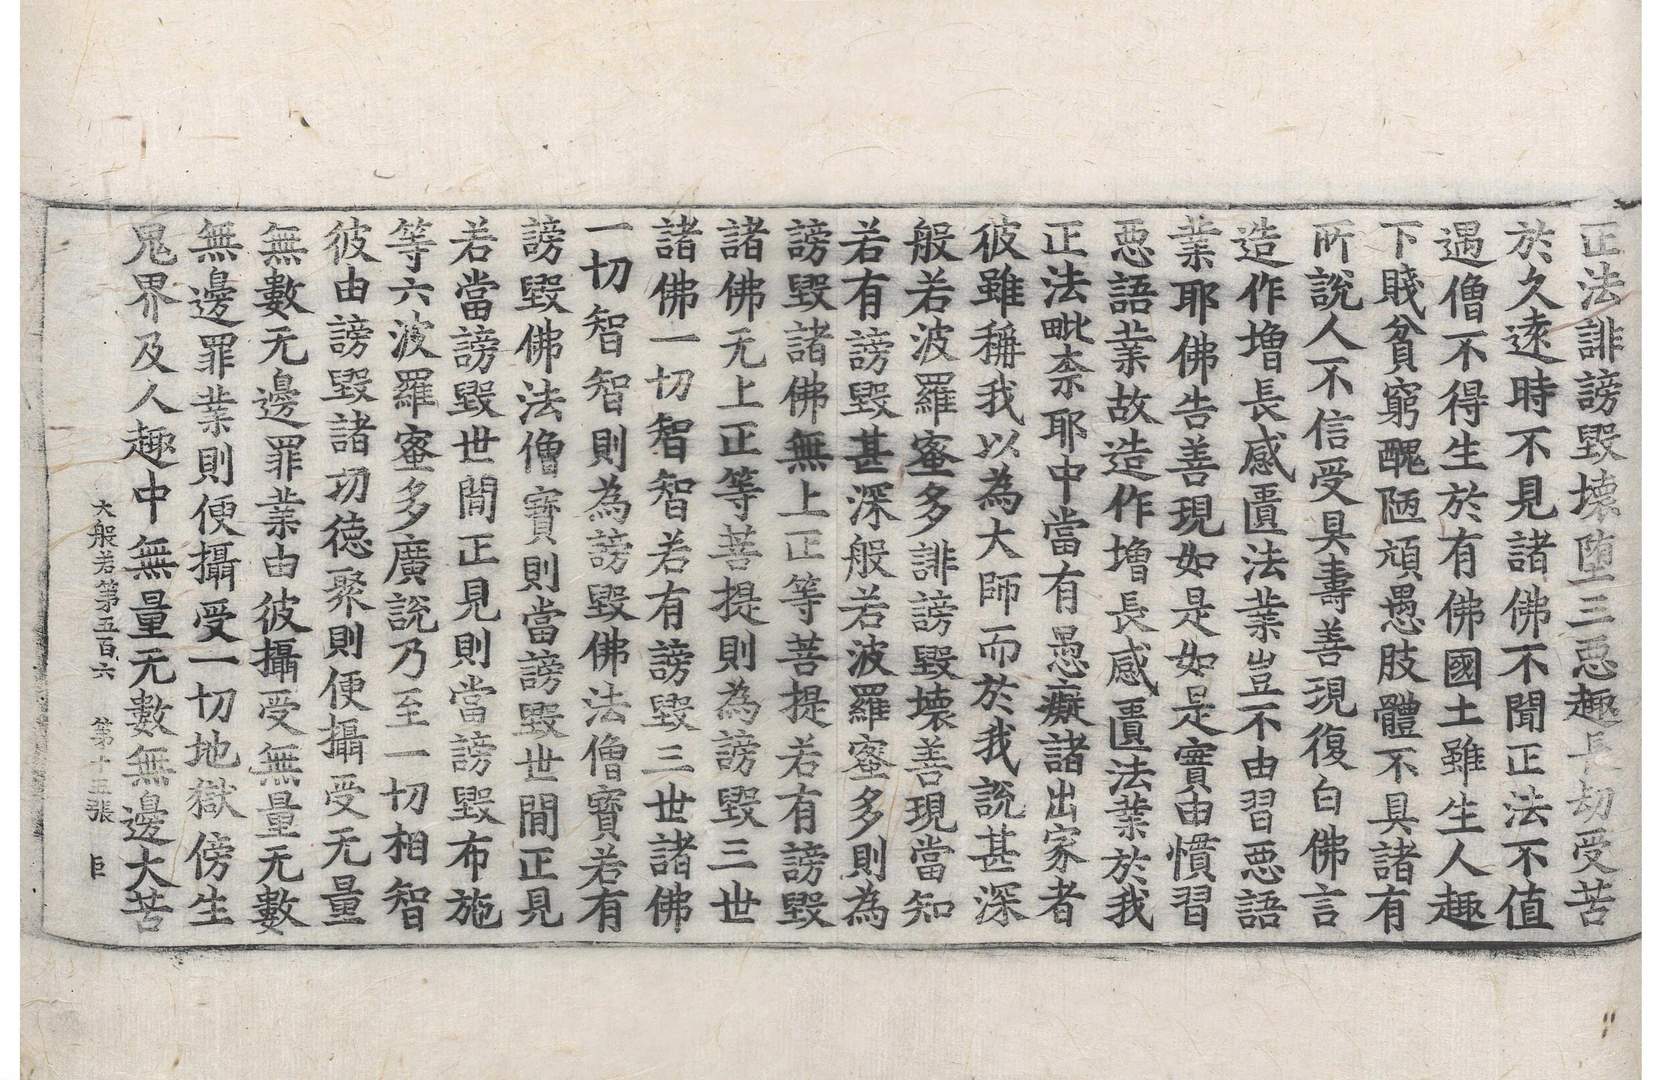 正法誹謗毀壞堕三惡趣長劫受苦
於久遠時不見諸佛不聞正法不值
遇僧不得生於有佛國土雖生人趣
下賤貧窮醜陋頑愚肢體不具諸有
所說人不信受具壽善現復白佛言
造作增長感匱法業豈不由習惡語
業耶佛告善現如是如是實由慣習
惡語業故造作增長感匱法業於我
正法毗柰耶中當有愚癡諸出家者
彼雖稱我以為大師而於我說甚深
般若波羅蜜多誹謗毀壞善現當知
若有謗毀甚深般若波羅蜜多則為
謗毀諸佛無上正等菩提若有謗毀
諸佛无上正等菩提則為謗毀三世
諸佛一切智智若有謗毀三世諸佛
一切智智則為謗毀佛法僧寶若有
謗毀佛法僧寶則當謗毀世間正見
若當謗毀世間正見則當謗毀布施
等六波羅蜜多廣說乃至一切相智
彼由謗毀諸功德聚則便攝受无量
無數无邊罪業由彼攝受無量无數
無邊罪業則便攝受一切地獄傍生
鬼界及人趣中無量无數無邊大苦
大般若第五百六　第十五張　巨